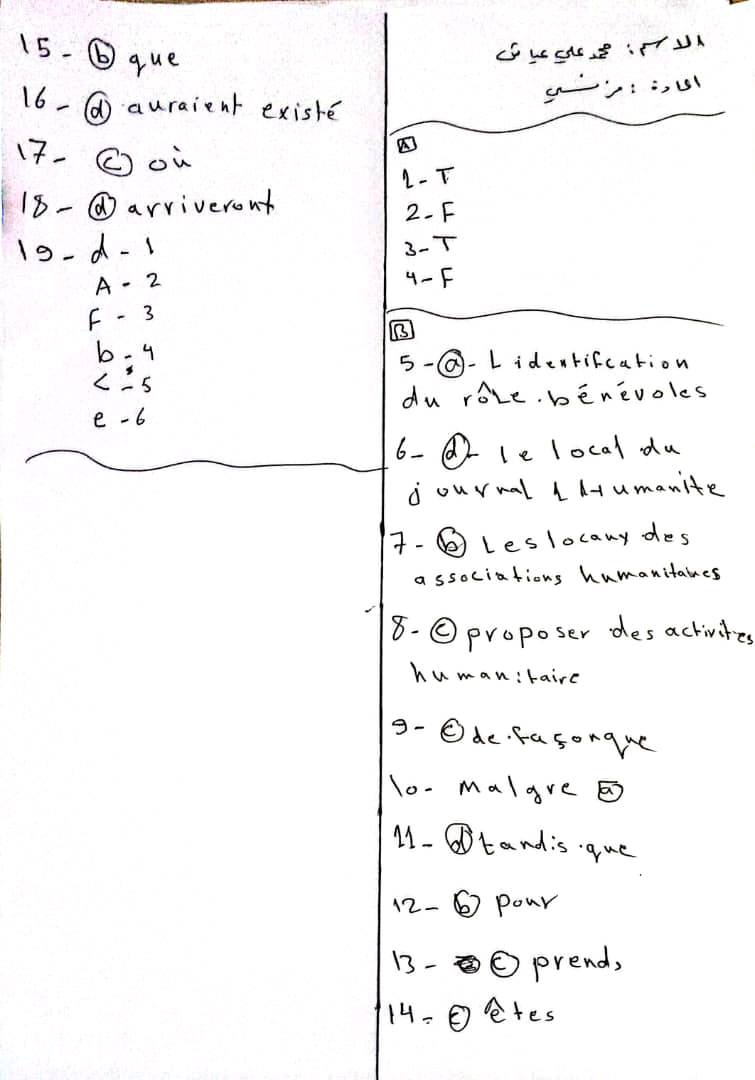 الاسم: محمد علي عياش
المادة: فرنسي
A
1- T
2- F
3- T
4- F
B
5 - ⓐ - L identifcation
du rôle. bénévoles
6- ⓓ le local du
journal l Humanite
7- ⓑ Les locaux des
associations humanitaires
8- ⓒ proposer des activités
humanitaire
9- ⓒ de. façonque
10- Malgre a
11- ⓓ tandis que
12- ⓑ pour
13- ⓒ prends
14- ⓒ êtes
15- ⓑ que
16- ⓓ auraient existé
17- ⓒ où
18- ⓓ arriveront
19- d - 1
A - 2
F - 3
b - 4
c - 5
e - 6